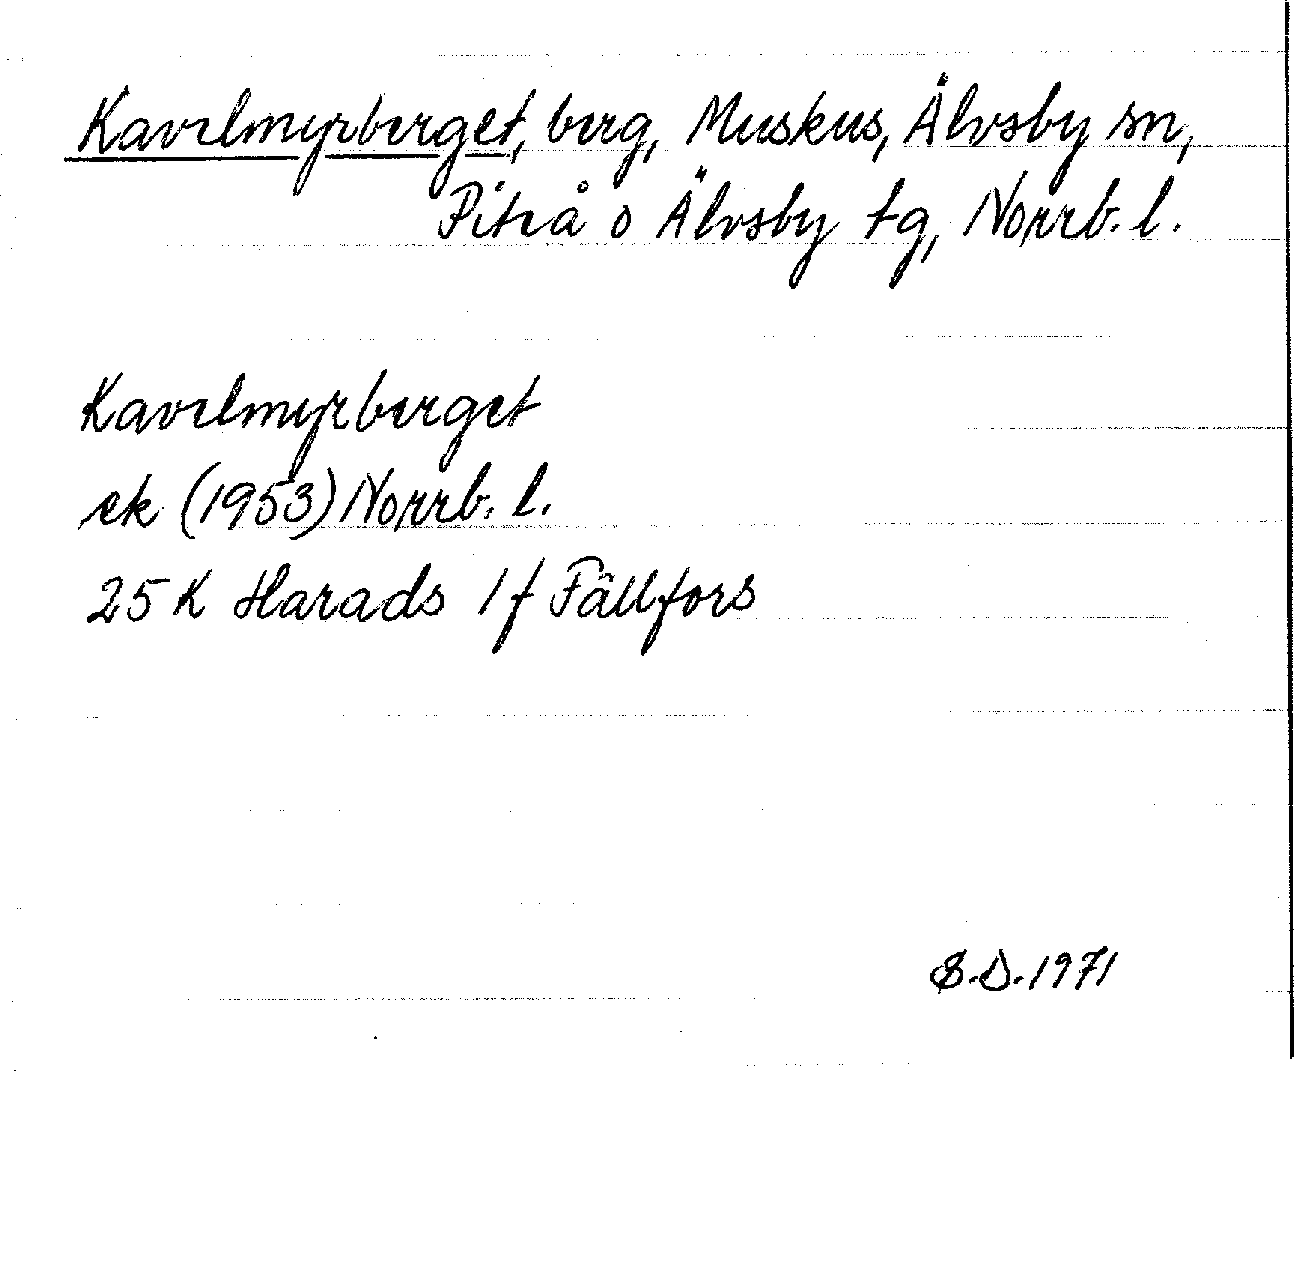 Kavelmyrberget, berg, Muskus, Älvsby sn,
Piteå o Älvsby tg, Norrb. l.
Kavelmyrberget
ek (1953) Norrb. l.
25 K Harads 1 f Fällfors
S.D. 1971